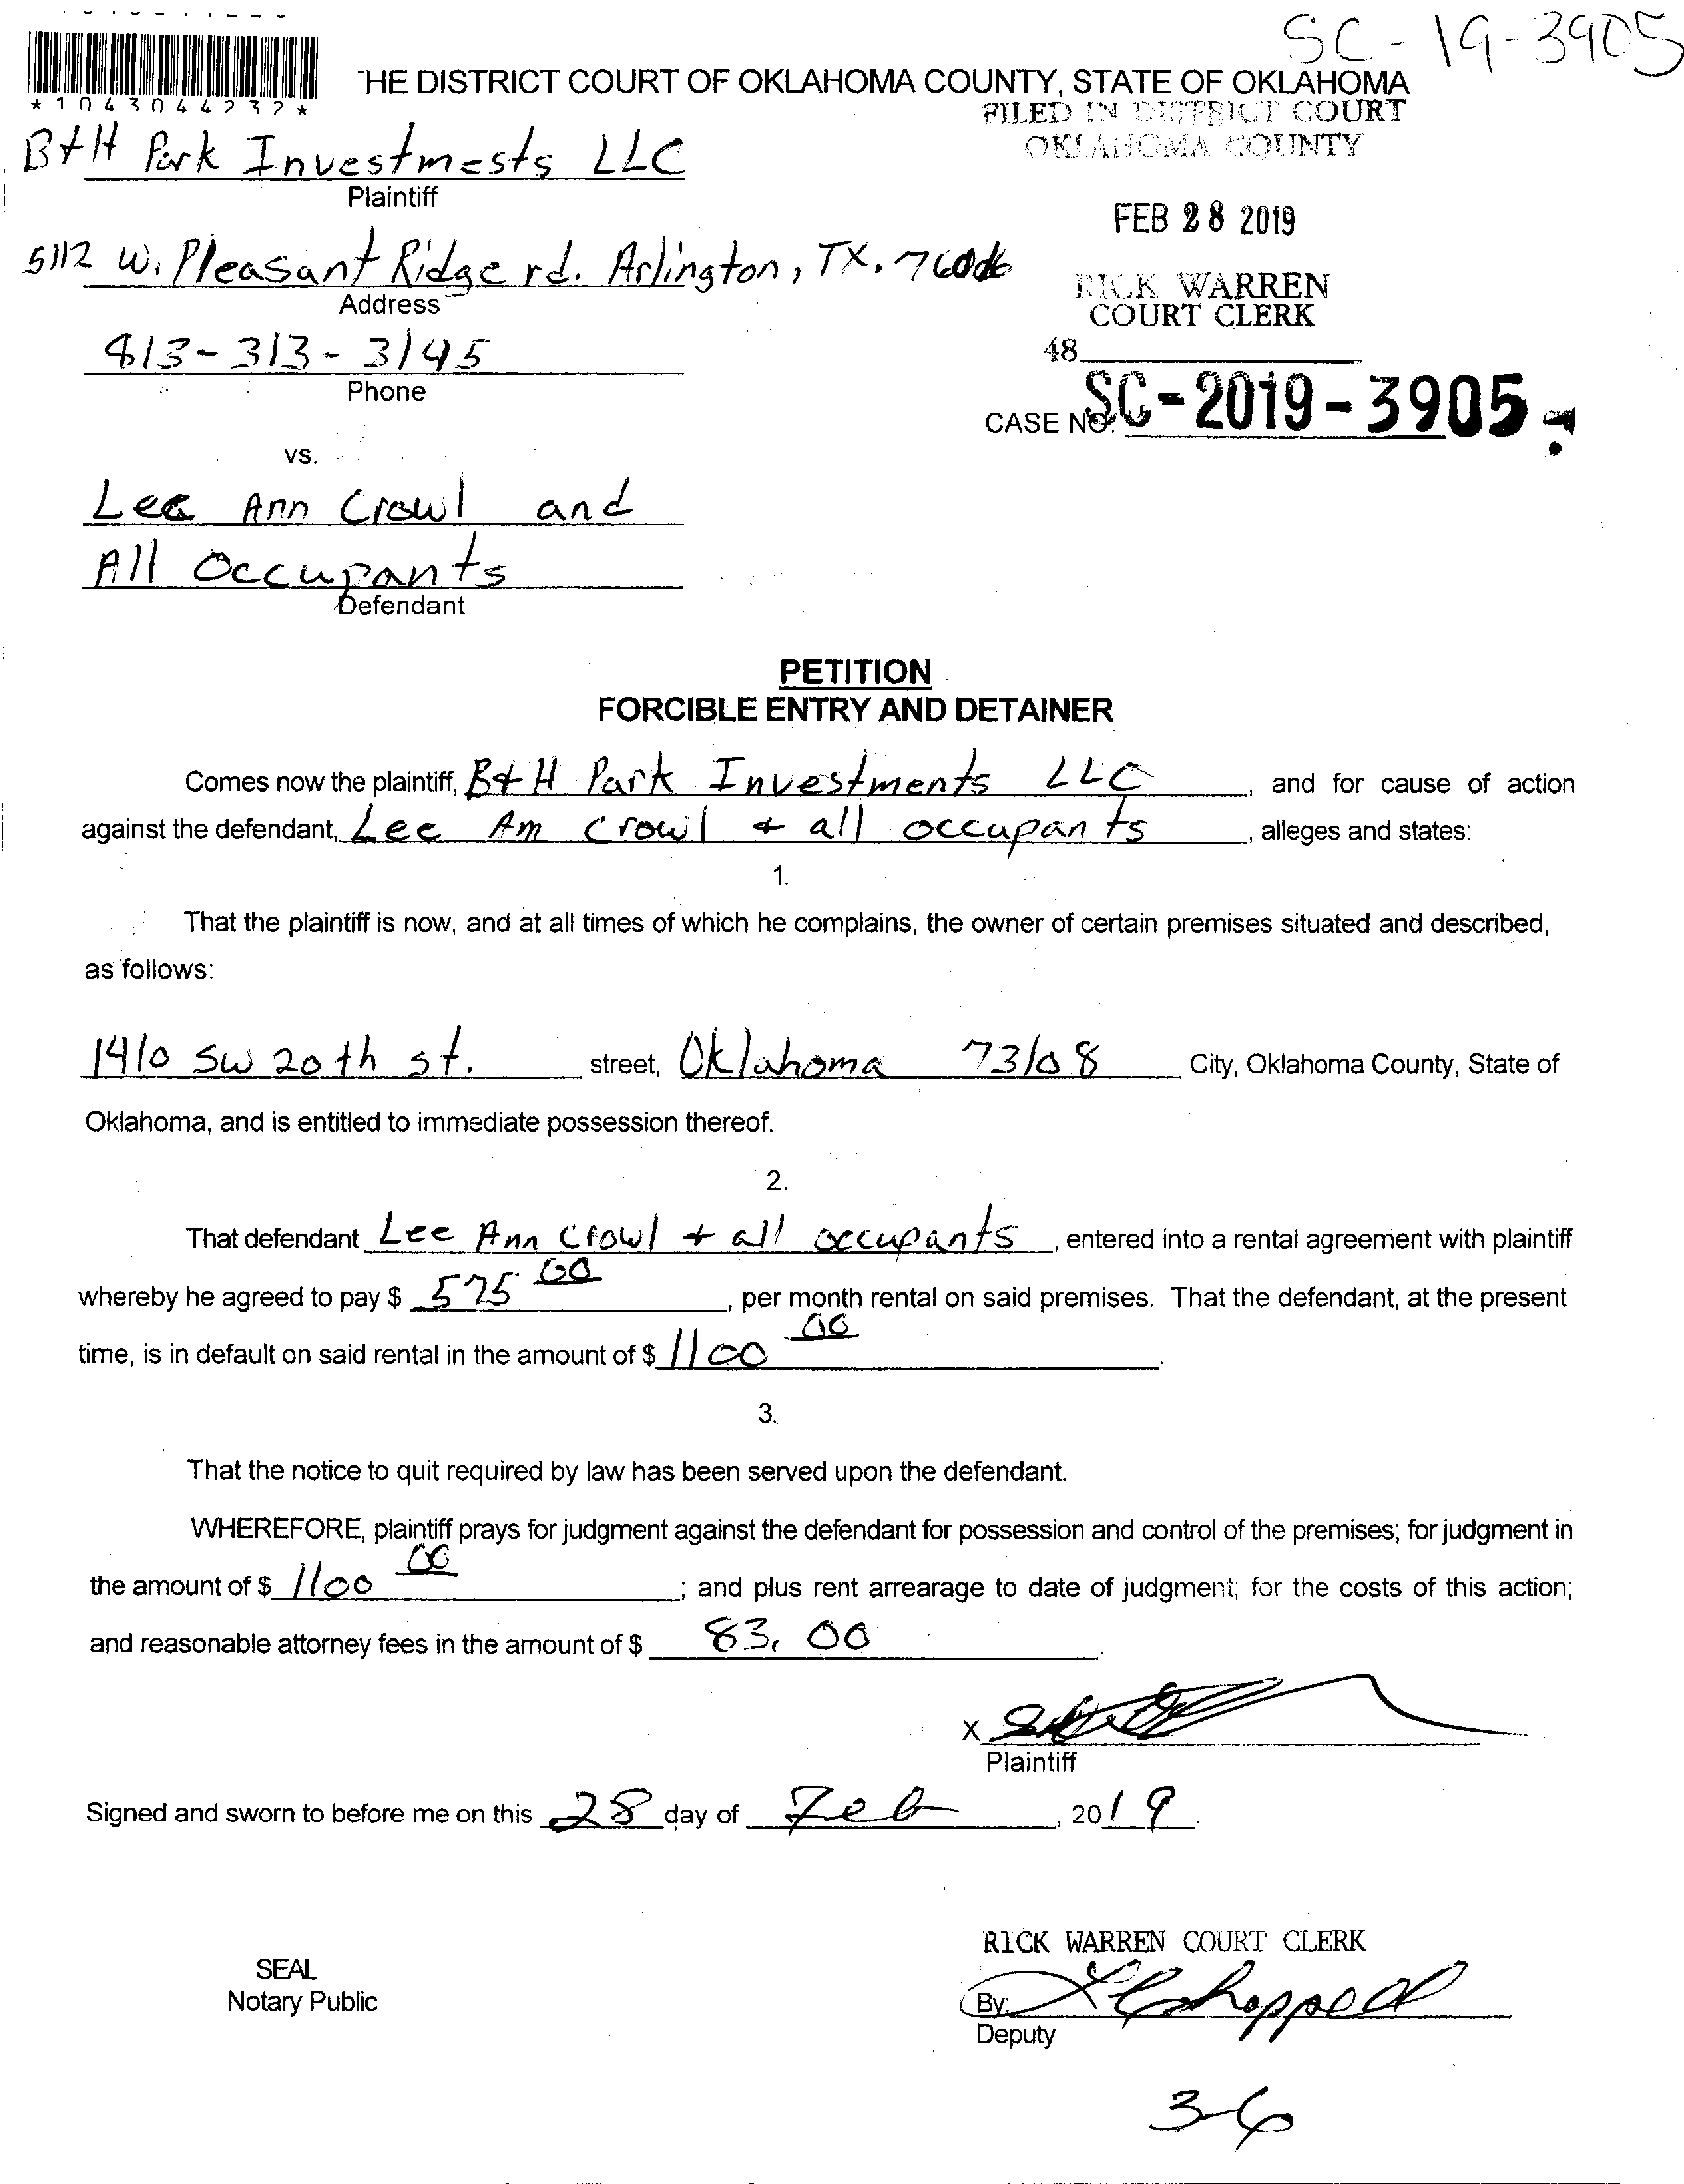 SC-19-3905
*1043044232*
THE DISTRICT COURT OF OKLAHOMA COUNTY, STATE OF OKLAHOMA
FILED IN DISTRICT COURT
OKLAHOMA COUNTY
B+H Park Investmests LLC
Plaintiff
FEB 28 2019
5112 W. Pleasant Ridge rd. Arlington, TX.
Address
RICK WARREN
COURT CLERK
813-313-3145
Phone
48
CASE NO. SC-2019-3905
vs.
Lee Ann Crowl and
All Occupants
Defendant
PETITION
FORCIBLE ENTRY AND DETAINER
Comes now the plaintiff, B+H Park Investments LLC, and for cause of action
against the defendant, Lee Ann Crowl + all occupants, alleges and states:
1.
That the plaintiff is now, and at all times of which he complains, the owner of certain premises situated and described,
as follows:
1410 SW 20th st. street, Oklahoma 73108 City, Oklahoma County, State of
Oklahoma, and is entitled to immediate possession thereof.
2.
That defendant Lee Ann Crowl + all occupants, entered into a rental agreement with plaintiff
whereby he agreed to pay $ 575 00, per month rental on said premises. That the defendant, at the present
time, is in default on said rental in the amount of $ 1100 00.
3.
That the notice to quit required by law has been served upon the defendant.
WHEREFORE, plaintiff prays for judgment against the defendant for possession and control of the premises; for judgment in
the amount of $ 1100 00; and plus rent arrearage to date of judgment; for the costs of this action;
and reasonable attorney fees in the amount of $ 83.00.
X
Plaintiff
Signed and sworn to before me on this 28 day of Feb, 2019.
RICK WARREN COURT CLERK
SEAL
Notary Public
By:
Deputy
3-6